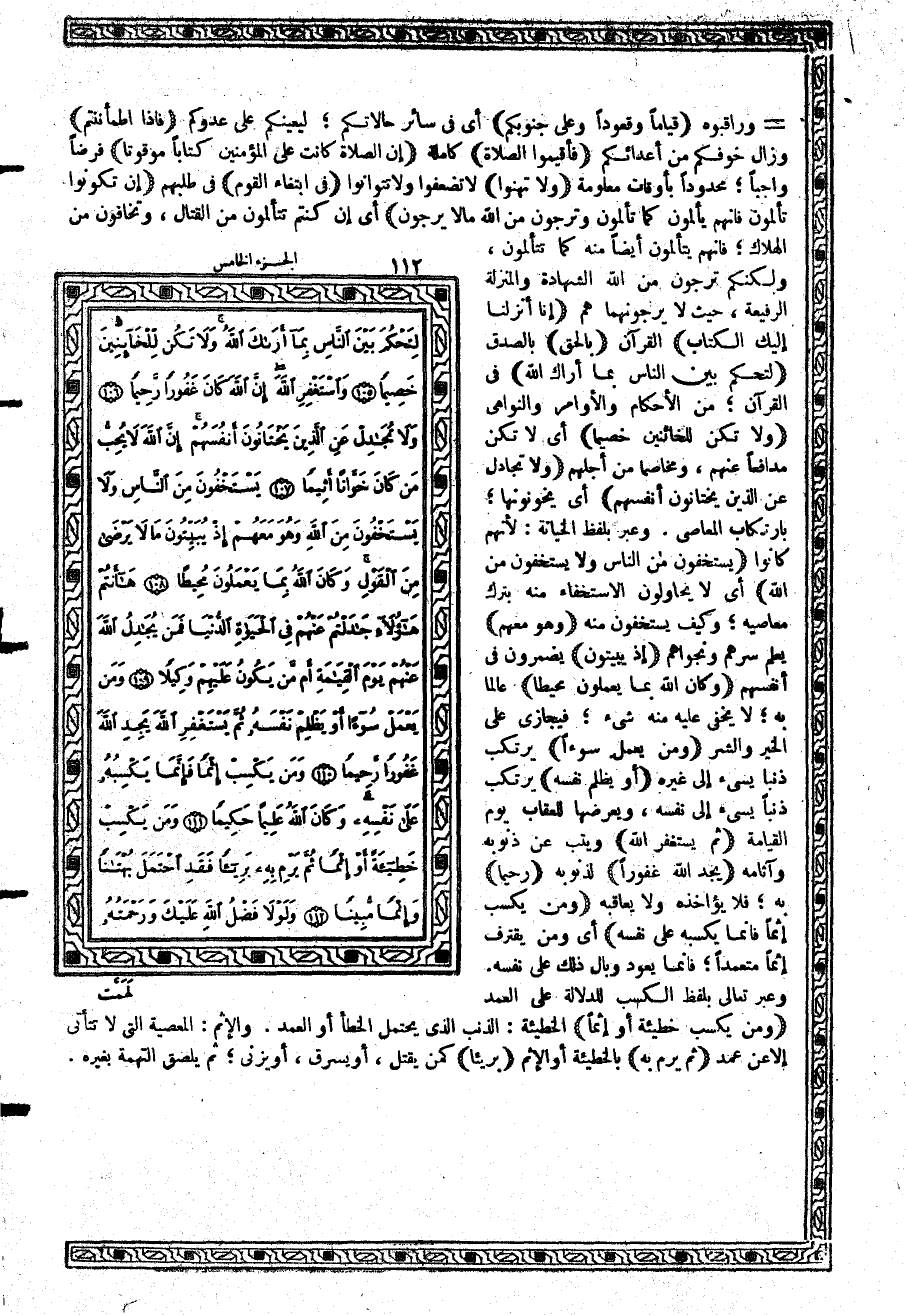 = وراقبوه (قياماً وقعوداً وعلى جنوبكم) أى فى سائر حالاتكم ؛ ليعينكم على عدوكم (فاذا اطمأننتم)
وزال خوفكم من أعدائكم (فأقيموا الصلاة) كاملة (إن الصلاة كانت على المؤمنين كتاباً موقوتا) فرضاً
واجباً ؛ محدوداً بأوقات معلومة (ولا تهنوا) لاتضعفوا ولاتتوانوا (فى ابتغاء القوم) فى طلبهم (إن تكونوا
تألمون فانهم يألمون كما تألمون وترجون من الله مالا يرجون) أى إن كنتم تتألمون من القتال ، وتخافون من
الهلاك ؛ فانهم يتألمون أيضاً منه كما تتألمون ،
ولكنكم ترجون من الله الشهادة والمنزلة
الرفيعة ، حيث لا يرجونهما هم (إنا أنزلنا
إليك الكتاب) القرآن (بالحق) بالصدق
(لتحكم بين الناس بما أراك الله) فى
القرآن ؛ من الأحكام والأوامر والنواهى
(ولا تكن للخائنين خصيما) أى لا تكن
مدافعاً عنهم ، ومخاصما من أجلهم (ولا تجادل
عن الذين يختانون أنفسهم) أى يخونونها ؛
بارتكاب المعاصى . وعبر بلفظ الخيانة : لأنهم
كانوا (يستخفون من الناس ولا يستخفون من
الله) أى لا يحاولون الاستخفاء منه بترك
معاصيه ؛ وكيف يستخفون منه (وهو معهم)
يعلم سرهم ونجواهم (إذ يبيتون) يضمرون فى
أنفسهم (وكان الله بما يعملون محيطا) عالما
به ؛ لا يخفى عليه منه شىء ؛ فيجازى على
الخير والشر (ومن يعمل سوءاً) يرتكب
ذنبا يسىء إلى غيره (أو يظلم نفسه) يرتكب
ذنباً يسىء إلى نفسه ، ويعرضها للعقاب يوم
القيامة (ثم يستغفر الله) ويتب عن ذنوبه
وآثامه (يجد الله غفوراً) لذنوبه (رحيما)
به ؛ فلا يؤاخذه ولا يعاقبه (ومن يكسب
إثماً فانما يكسبه على نفسه) أى ومن يقترف
إثماً متعمداً ؛ فانما يعود وبال ذلك على نفسه.
وعبر تعالى بلفظ الكسب للدلالة على العمد
(ومن يكسب خطيئة أو إثماً) الخطيئة : الذنب الذى يحتمل الخطأ أو العمد . والإثم : المعصية التى لا تتأتى
إلاعن عمد (ثم يرم به) بالخطيئة أوالإثم (بريئا) كمن يقتل ، أويسرق ، أويزنى ؛ ثم يلصق التهمة بغيره .
١١٢ الجزء الخامس
لِتَحْكُمَ بَيْنَ ٱلنَّاسِ بِمَآ أَرَىٰكَ ٱللَّهُ ۚ وَلَا تَكُن لِّلْخَآئِنِينَ
خَصِيمًا ١٠٥ وَٱسْتَغْفِرِ ٱللَّهَ ۖ إِنَّ ٱللَّهَ كَانَ غَفُورًا رَّحِيمًا ١٠٦
وَلَا تُجَٰدِلْ عَنِ ٱلَّذِينَ يَخْتَانُونَ أَنفُسَهُمْ ۚ إِنَّ ٱللَّهَ لَا يُحِبُّ
مَن كَانَ خَوَّانًا أَثِيمًا ١٠٧ يَسْتَخْفُونَ مِنَ ٱلنَّاسِ وَلَا
يَسْتَخْفُونَ مِنَ ٱللَّهِ وَهُوَ مَعَهُمْ إِذْ يُبَيِّتُونَ مَا لَا يَرْضَىٰ
مِنَ ٱلْقَوْلِ ۚ وَكَانَ ٱللَّهُ بِمَا يَعْمَلُونَ مُحِيطًا ١٠٨ هَٰٓأَنتُمْ
هَٰٓؤُلَآءِ جَٰدَلْتُمْ عَنْهُمْ فِى ٱلْحَيَوٰةِ ٱلدُّنْيَا فَمَن يُجَٰدِلُ ٱللَّهَ
عَنْهُمْ يَوْمَ ٱلْقِيَٰمَةِ أَم مَّن يَكُونُ عَلَيْهِمْ وَكِيلًا ١٠٩ وَمَن
يَعْمَلْ سُوٓءًا أَوْ يَظْلِمْ نَفْسَهُۥ ثُمَّ يَسْتَغْفِرِ ٱللَّهَ يَجِدِ ٱللَّهَ
غَفُورًا رَّحِيمًا ١١٠ وَمَن يَكْسِبْ إِثْمًا فَإِنَّمَا يَكْسِبُهُۥ
عَلَىٰ نَفْسِهِۦ ۚ وَكَانَ ٱللَّهُ عَلِيمًا حَكِيمًا ١١١ وَمَن يَكْسِبْ
خَطِيٓـَٔةً أَوْ إِثْمًا ثُمَّ يَرْمِ بِهِۦ بَرِيٓـًٔا فَقَدِ ٱحْتَمَلَ بُهْتَٰنًا
وَإِثْمًا مُّبِينًا ١١٢ وَلَوْلَا فَضْلُ ٱللَّهِ عَلَيْكَ وَرَحْمَتُهُۥ
لَهَمَّت